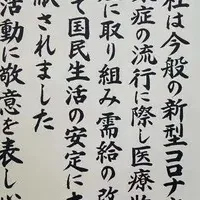 社は今般の新型コロナ
症の流行に際し医療
に取り組み需給の改
て国民生活の安定に
献されました
活動に敬意を表し